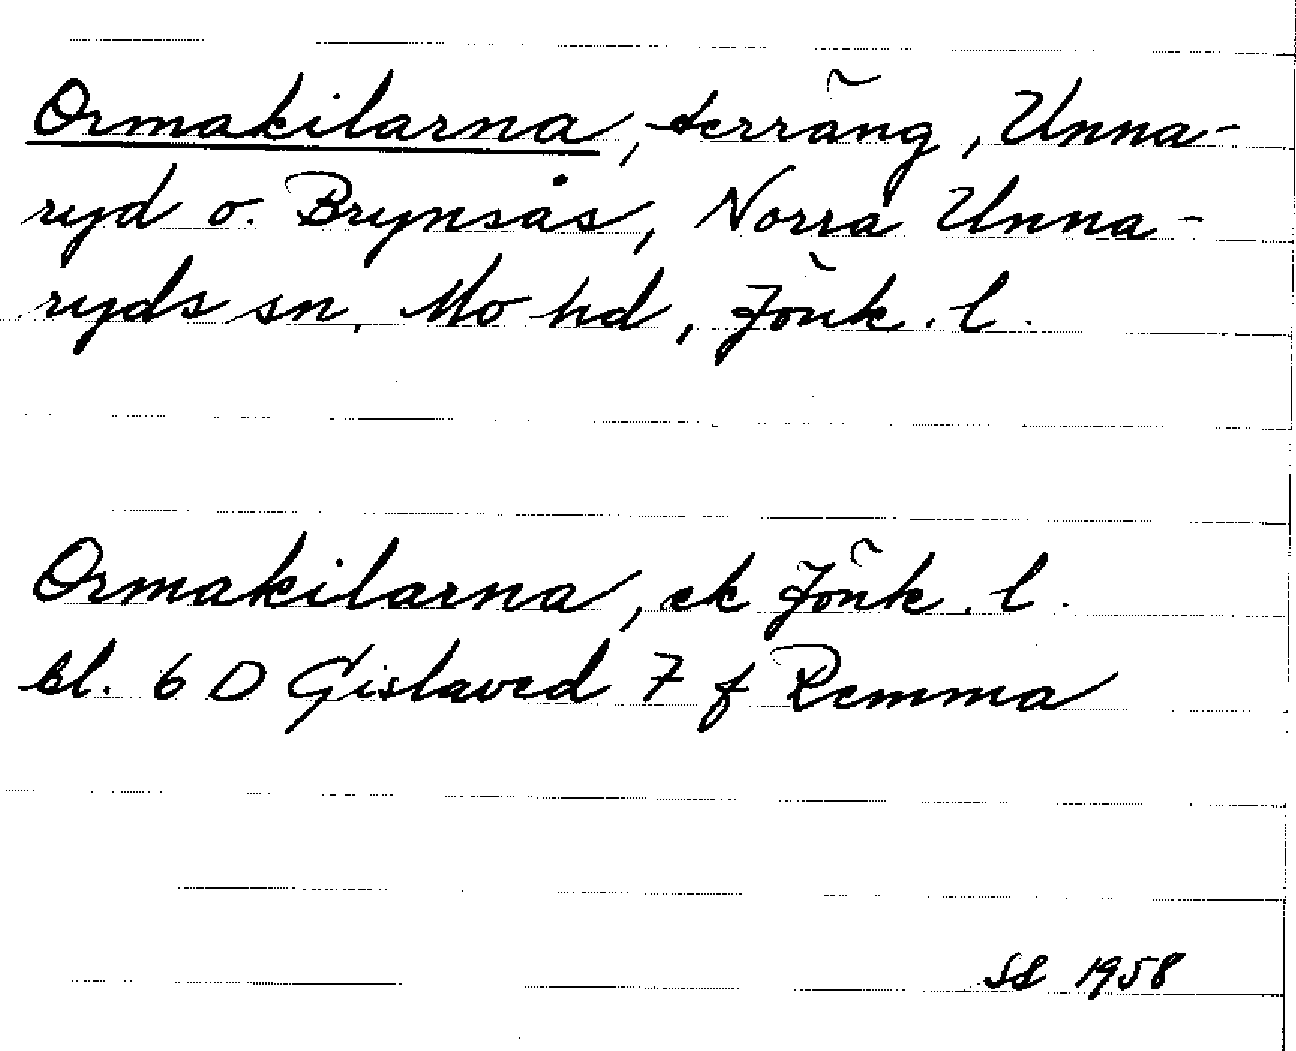 Ormakilarna, terräng, Unna-
ryd o. Brynsås, Norra Unna-
ryds sn, Mo hd, Jönk. l.
Ormakilarna, ek Jönk. l.
bl. 6 D Gislaved 7 f Remma
SS 1958